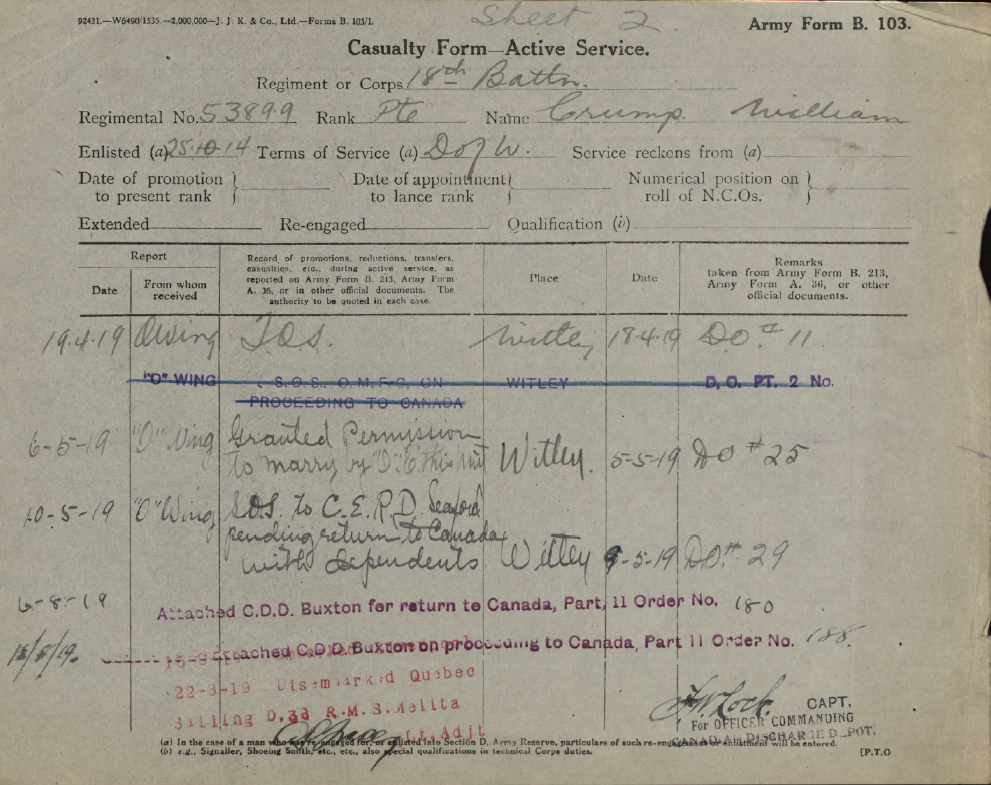 92431.—W6490/1535.—2,000,000—J. J. K. & Co., Ltd.—Forms B. 103/1.
Sheet 2
Army Form B. 103.
Casualty Form—Active Service.
Regiment or Corps 18th Battn.
Regimental No. 53899 Rank Pte Name Crump William
Enlisted (a) 25.10.14 Terms of Service (a) D of W. Service reckons from (a)
Date of promotion to present rank } Date of appointment to lance rank } Numerical position on roll of N.C.Os. }
Extended Re-engaged Qualification (b)
Report
Date
From whom received
Record of promotions, reductions, transfers, casualties, etc., during active service, as reported on Army Form B. 213, Army Form A. 36, or in other official documents. The authority to be quoted in each case.
Place
Date
Remarks
taken from Army Form B. 213, Army Form A. 36, or other official documents.
19.4.19 O Wing TOS. Witley 18.4.19 DO # 11
"O" WING S.O.S. O.M.F.C, ON WITLEY D.O. PT. 2 No.
PROCEEDING TO CANADA
6-5-19 "O" Wing Granted Permission
to marry by "O.C." this unit Witley. 5-5-19 DO #25
10-5-19 "O" Wing S.O.S. to C.E.R.D. Seaford
pending return to Canada
with dependents Witley 9-5-19 DO.# 29
6-8-19 Attached C.D.D. Buxton for return to Canada, Part, 11 Order No. 180
15/8/19. Attached C.D.D. Buxton on proceeding to Canada, Part 11 Order No. 188.
22-8-19 Disembarked Quebec
Sailing D.33 R.M.S. Melita
Lt. Adjt
CAPT.
For OFFICER COMMANDING
CANADIAN DISCHARGE DEPOT.
(a) In the case of a man who has re-engaged for, or enlisted into Section D, Army Reserve, particulars of such re-engagement or enlistment will be entered.
(b) e.g., Signaller, Shoeing Smith, etc., etc., also special qualifications in technical Corps duties.
[P.T.O